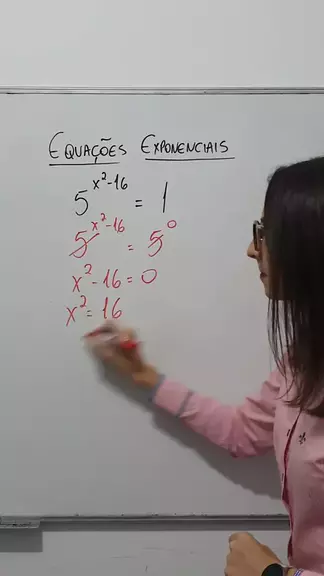 EQUAÇÕES EXPONENCIAIS
5^{x²-16} = 1
5^{x²-16} = 5^0
x² - 16 = 0
x² = 16